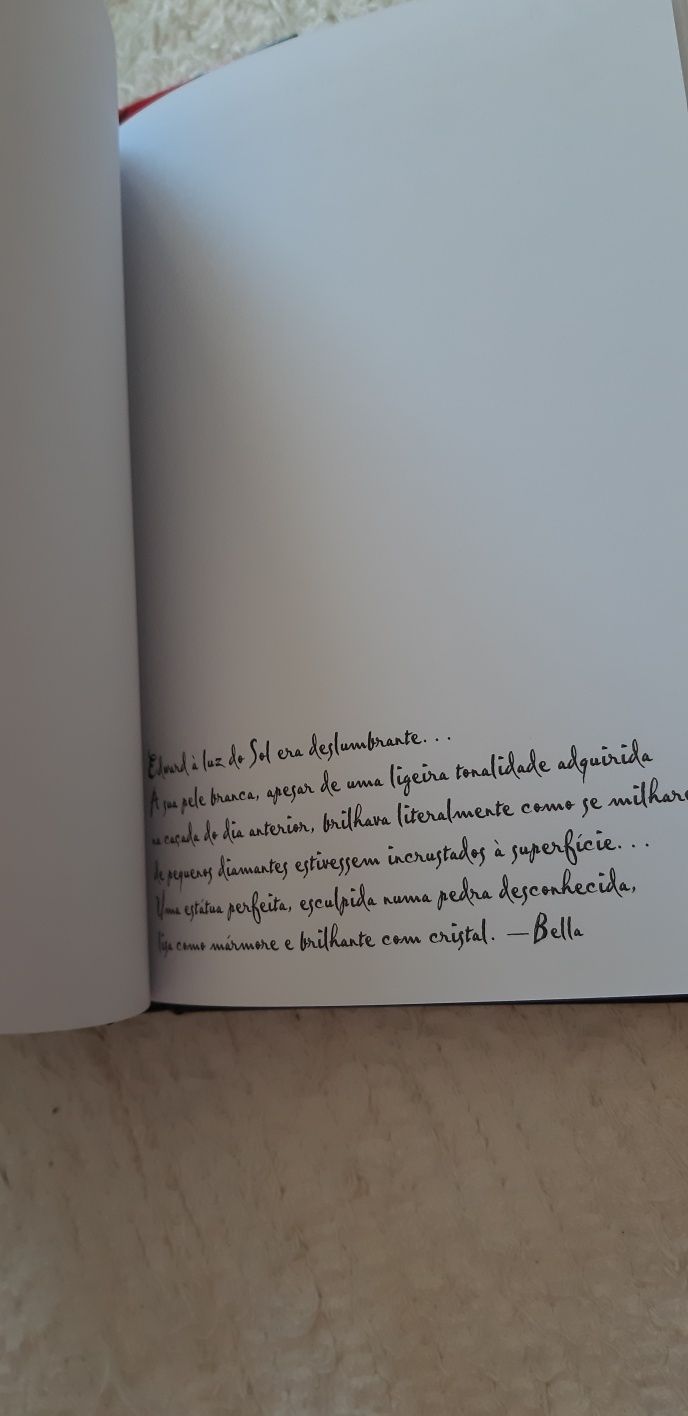 Edward à luz do Sol era deslumbrante...
A sua pele branca, apesar de uma ligeira tonalidade adquirida
na caçada do dia anterior, brilhava literalmente como se milhare
de pequenos diamantes estivessem incrustados à superfície...
Uma estátua perfeita, esculpida numa pedra desconhecida,
lisa como mármore e brilhante com cristal. —Bella